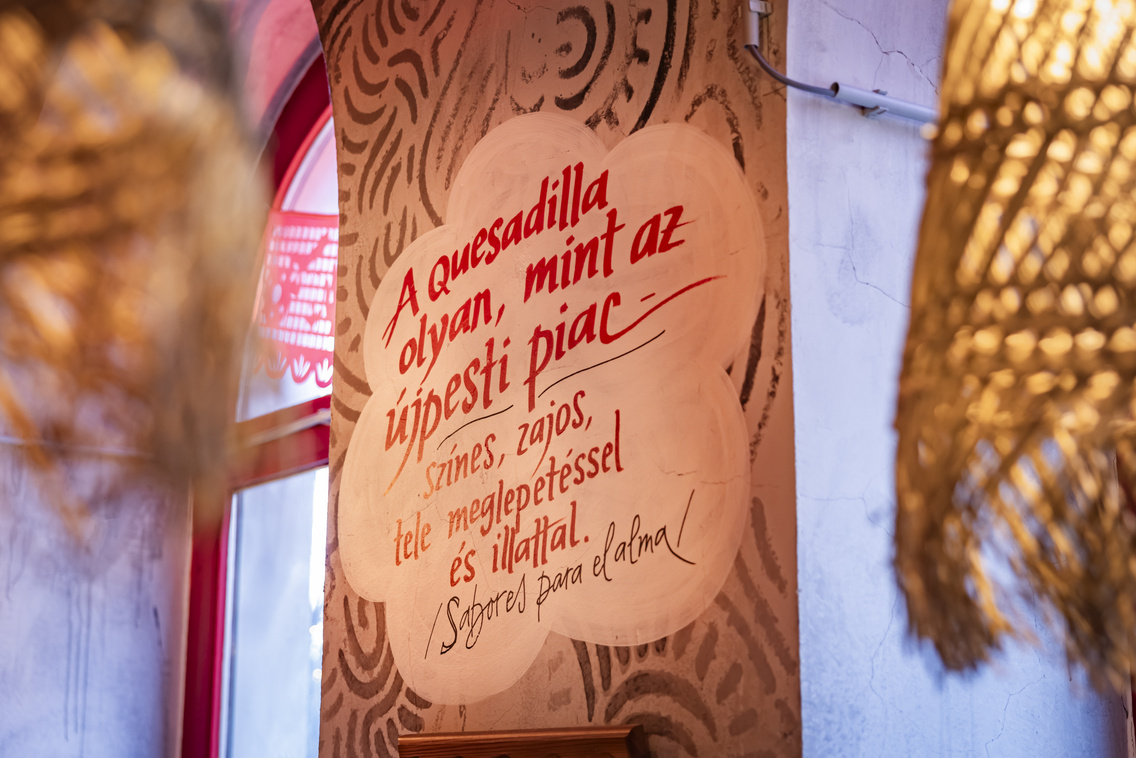 A quesadilla
olyan, mint az
újpesti piac –
színes, zajos,
tele meglepetéssel
és illattal.
/Sabores para el alma/